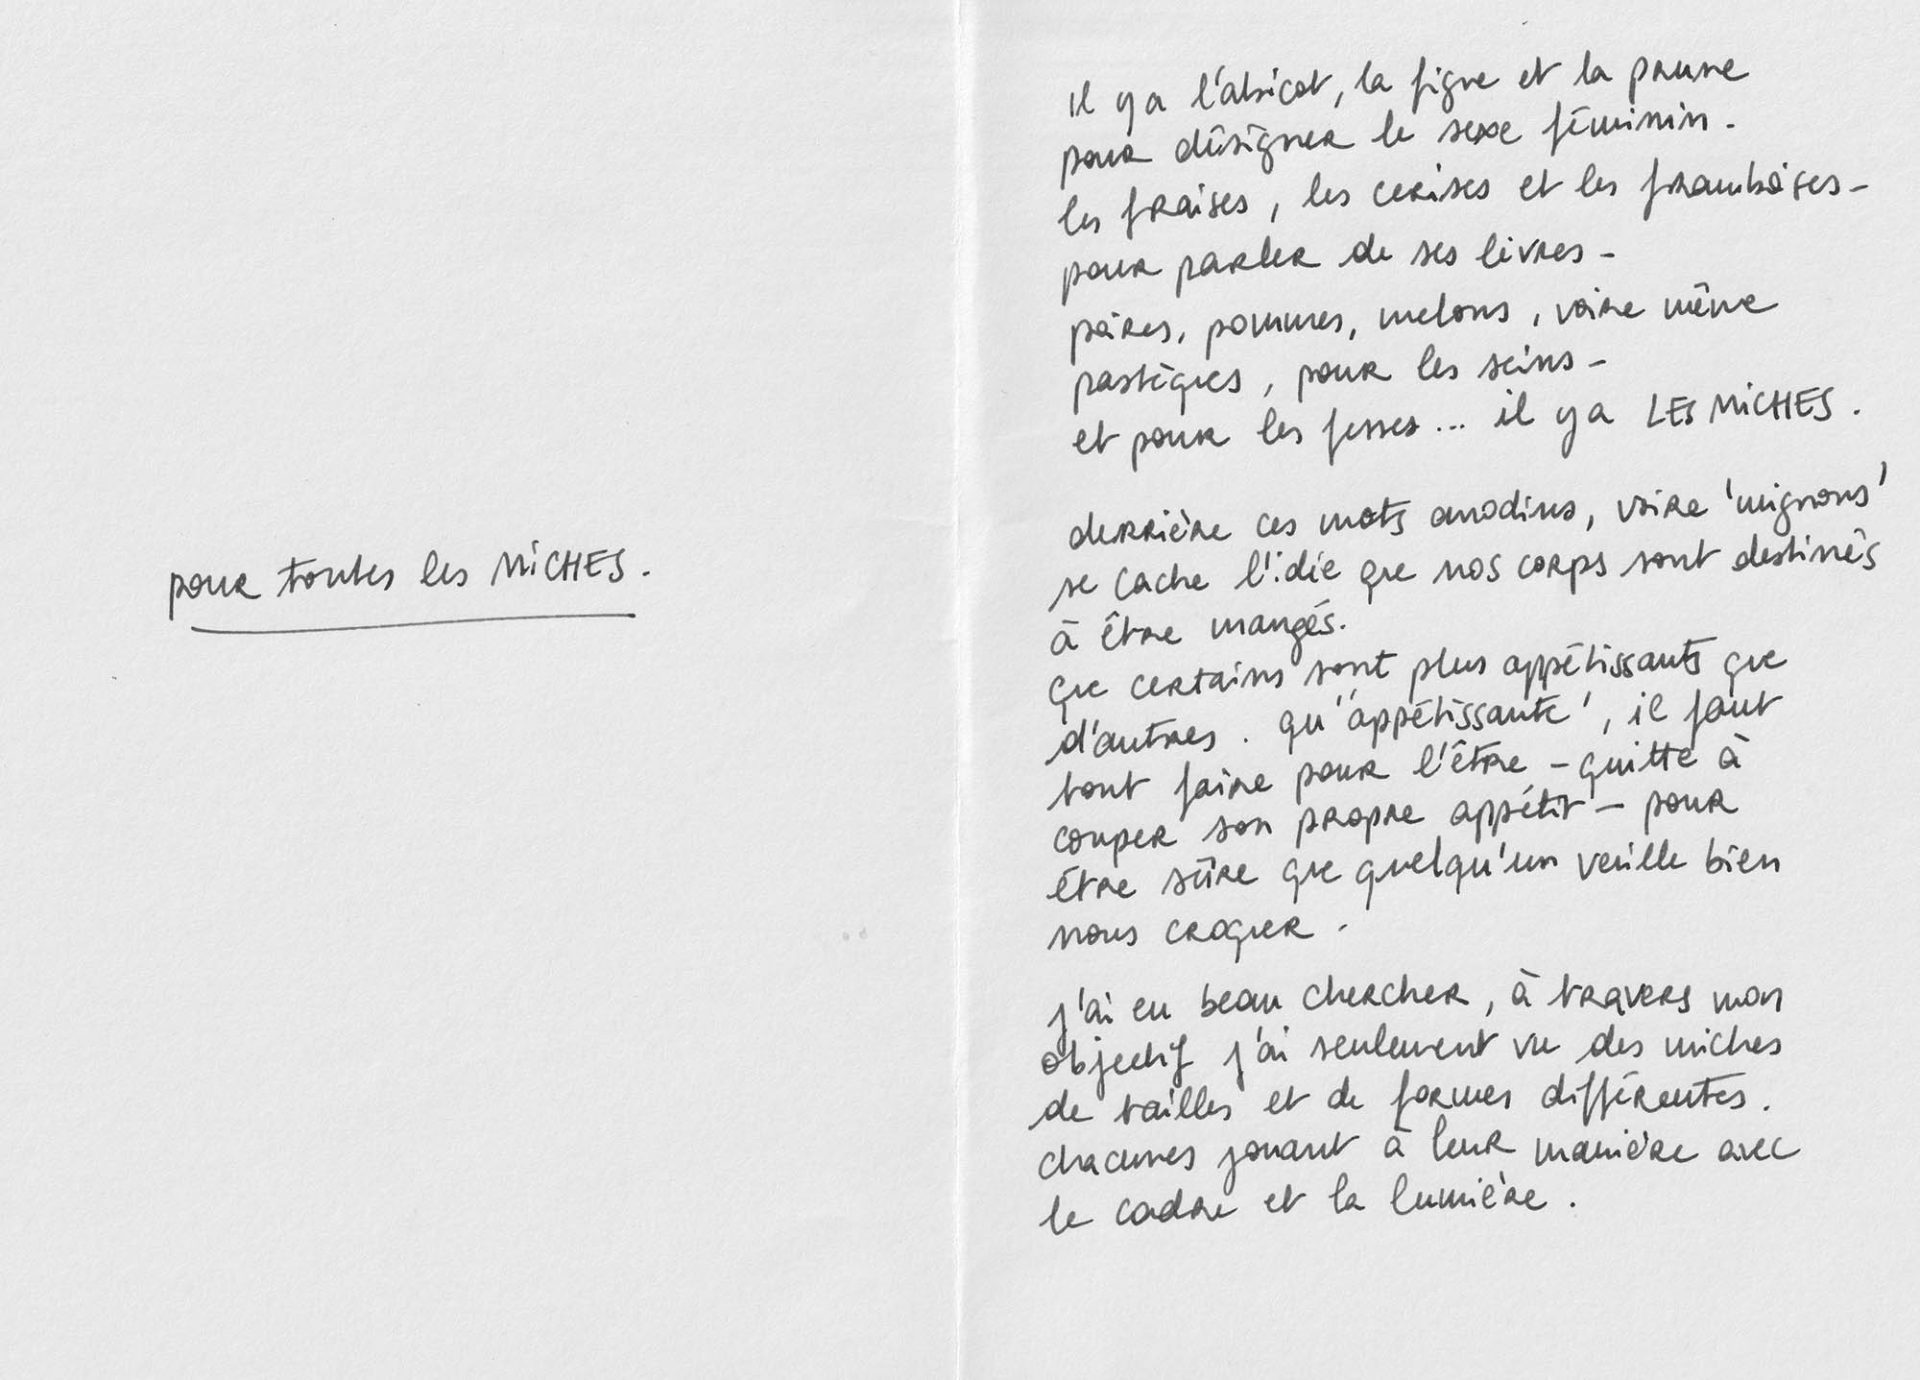 pour toutes les MiCHES.
il y a l'abricot, la figue et la prune
pour désigner le sexe féminin.
les fraises, les cerises et les framboises-
pour parler de ses lèvres-
poires, pommes, melons, voire même
pastèques, pour les seins-
et pour les fesses... il y a LES MiCHES.
derrière ces mots anodins, voire 'mignons'
se cache l'idée que nos corps sont destinés
à être mangés.
que certains sont plus appétissants que
d'autres. qu''appétissante', il faut
tout faire pour l'être - quitte à
couper son propre appétit - pour
être sûre que quelqu'un veuille bien
nous croquer.
j'ai eu beau chercher, à travers mon
objectif j'ai seulement vu des miches
de tailles et de formes différentes.
chacunes jouant à leur manière avec
le cadre et la lumière.